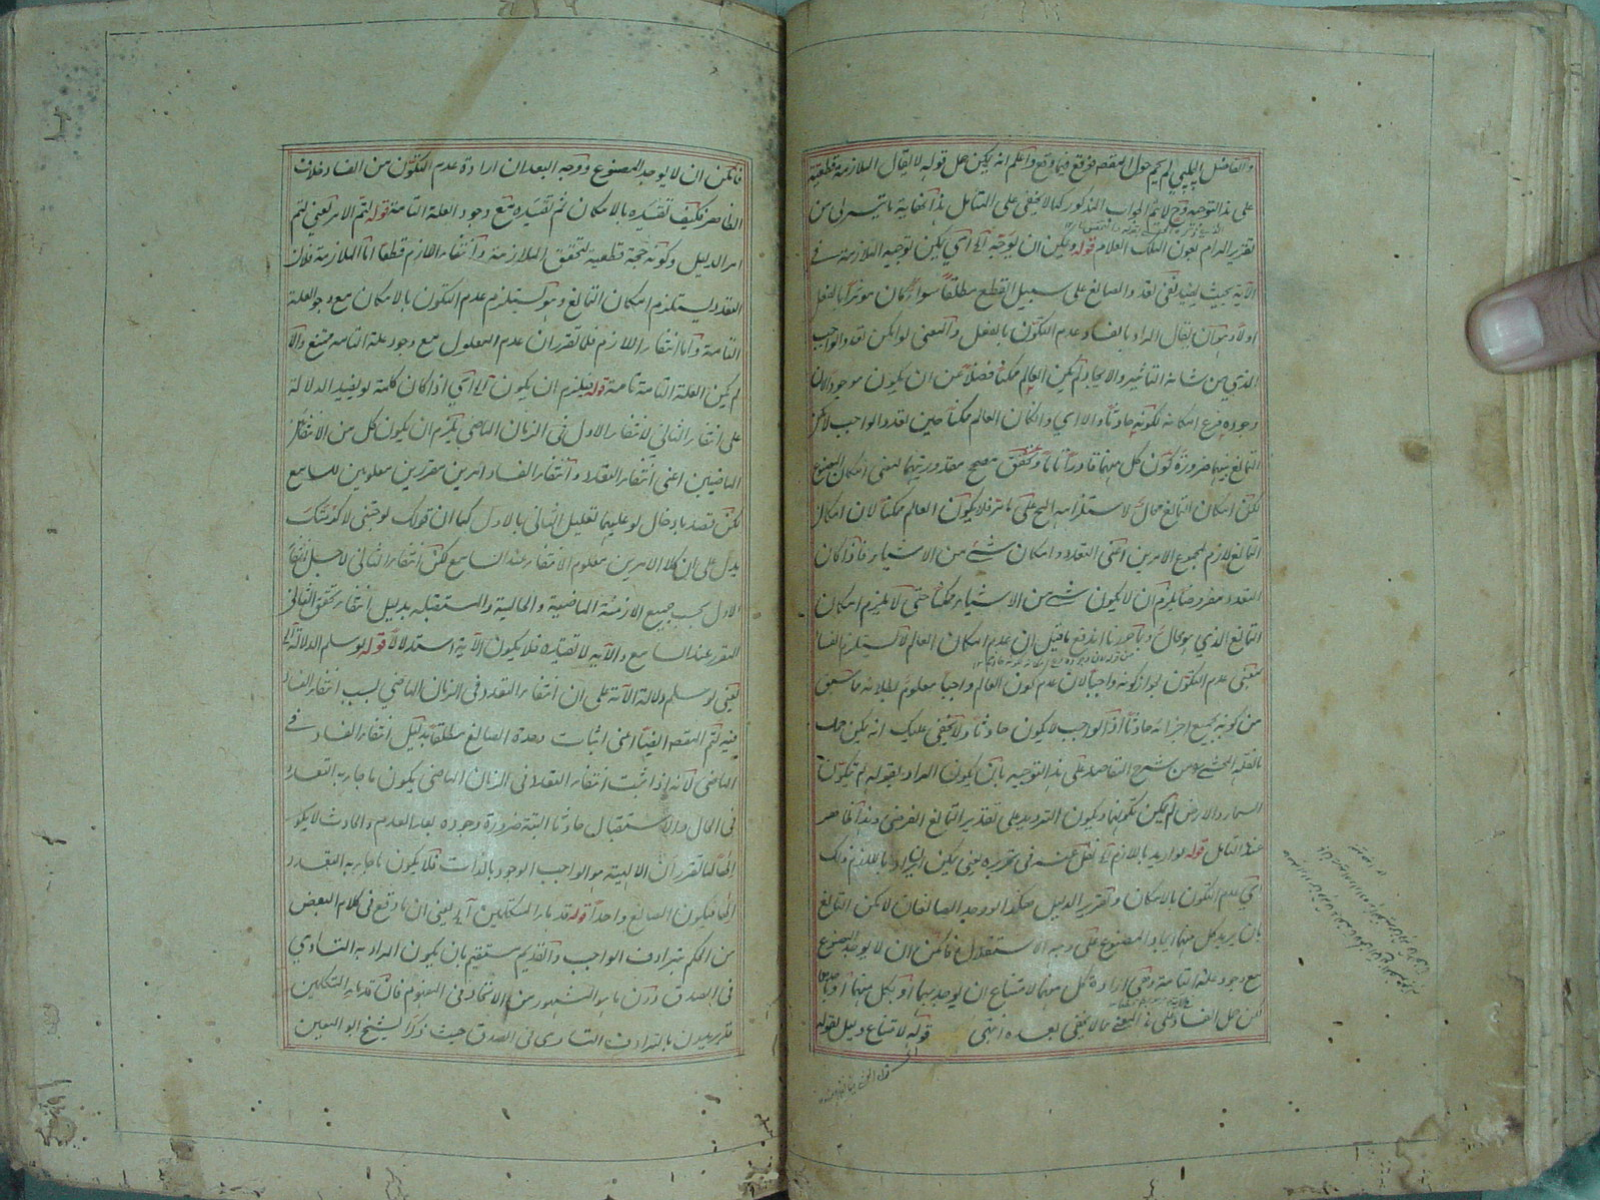 والفاضل الچلپي لم يحم حول المقصد فوقع فيما وقع واعلم انه يمكن حمل قوله لا يقال الملازمة قطعية
على هذا التوجيه وح لا يتم الجواب المذكور كما لا يخفى على المتأمل هذا نهاية ما تيسر لي من
تقرير المرام بعون الملك العلام قوله ويمكن ان يوجه آه اي يمكن توجيه الملازمة في
الآية بحيث يفيد نفي تعدد الصانع على سبيل القطع مطلقا سواء كان مؤثرا بالفعل
اولا وهو ان يقال المراد بالفساد عدم التكون بالفعل والمعنى لو امكن تعدد الواجب
الذي من شانه التاثير والايجاد لم يكن العالم ممكنا فضلا عن ان يكون موجودا لان
وجوده فرع امكانه لكونه حادثا والا اي وان كان العالم ممكنا حين تعدد الواجب لامكن
التمانع بينهما ضرورة كون كل منهما قادرا تاما وتحقق مصحح مقدوريتهما لمعنى امكان المصنوع
لكن امكان التمانع محال لاستلزامه المحال على ما مر فلا يكون العالم ممكنا لان امكان
التمانع لازم لمجموع الامرين اعني التعدد وامكان شيء من الاشياء فاذا كان
التعدد مفروضا يلزم ان لا يكون شيء من الاشياء ممكنا حتى لا يلزم امكان
التمانع الذي هو محال وبما حررنا اندفع ما قيل ان عدم امكان العالم لا يستلزم الفساد
بمعنى عدم التكون لجواز كونه واجبا لان عدم كون العالم واجبا معلوم لبطلانه ما سبق
من كونه بجميع اجزائه حادثا اذ الواجب لا يكون حادثا ولا يخفى عليك انه يمكن حمل
ما نقله المحشي من شرح المقاصد على هذا التوجيه بان يكون المراد بقوله لم تتكون
السماء والارض لم يمكن تكونهما ويكون الترديد على تقدير التمانع الفرضي وهذا ظاهر
عند التامل قوله لو اريد باللازم آه نقل عنه في تحريره يعني يمكن ان يراد باللازم ذلك
اي عدم التكون بالامكان وتقرير الدليل هكذا لو وجد الصانعان لامكن التمانع
بان يريد كل منهما ايجاد المصنوع على وجه الاستقلال فامكن ان لا يوجد المصنوع
مع وجود علته التامة وهي ارادة كل منهما لامتناع ان يوجد بهما او بكل منهما او باحدهما
لكن حمل الفساد على هذا المعنى مما لا يخفى بعده انتهى قوله لامتناع دليل لقوله
فامكن ان لا يوجد المصنوع ووجه البعد ان ارادة عدم التكون من الفساد خلاف
الظاهر فكيف تقييده بالامكان ثم تقييده مع وجود العلة التامة قوله لتم الامر يعني لتم
امر الدليل وكونه حجة قطعية لتحقق الملازمة وانتفاء اللازم قطعا اما الملازمة فلان
التعدد يستلزم امكان التمانع وهو يستلزم عدم التكون بالامكان مع وجود العلة
التامة واما انتفاء اللازم فلما تقرر ان عدم المعلول مع وجود علته التامة ممتنع والا
لم يكن العلة التامة تامة قوله فيلزم ان يكون آه اي اذا كان كلمة لو يفيد الدلالة
على انتفاء الثاني لانتفاء الاول في الزمان الماضي يلزم ان يكون كل من الانتفائين
الماضيين اعني انتفاء التعدد وانتفاء الفساد امرين مقررين معلومين للسامع
لكن قصد بادخال لو عليهما تعليل الثاني بالاول كما ان قولك لو جئتني لاكرمتك
يدل على ان كلا الامرين معلوم الانتفاء عند السامع لكن انتفاء الثاني لاجل انتفاء
الاول بحسب جميع الازمنة الماضية والحالية والمستقبلة بدليل انتفاء تحقق الثاني
المقرر عند السامع والآية لا تفيده فلا يكون الآية استدلالا قوله لو سلم الدلالة الخ
يعني لو سلم دلالة الآية على ان انتفاء التعدد في الزمان الماضي بسبب انتفاء الفساد
فيه لتم المقصد ايضا اعني اثبات وحدة الصانع مطلقا بدليل انتفاء الفساد في
الماضي لانه اذا ثبت انتفاء التعدد في الزمان الماضي يكون ما جاء به التعدد
في الحال والاستقبال حادثا البتة ضرورة وجوده بعد العدم والحادث لا يكون
الها لما تقرر ان الاله هو الواجب الوجود بالذات فلا يكون ما جاء به التعدد
الها فيكون الصانع واحدا قوله قدماء المتكلمين آه يعني ان ما وقع في كلام البعض
من الحكم بترادف الواجب والقديم مستقيم بان يكون المراد به التساوي
في الصدق دون ما هو المشهور من الاتحاد في المفهوم فان قدماء المتكلمين
قد يريدون بالترادف التساوي في الصدق حيث ذكر الشيخ ابو المعين